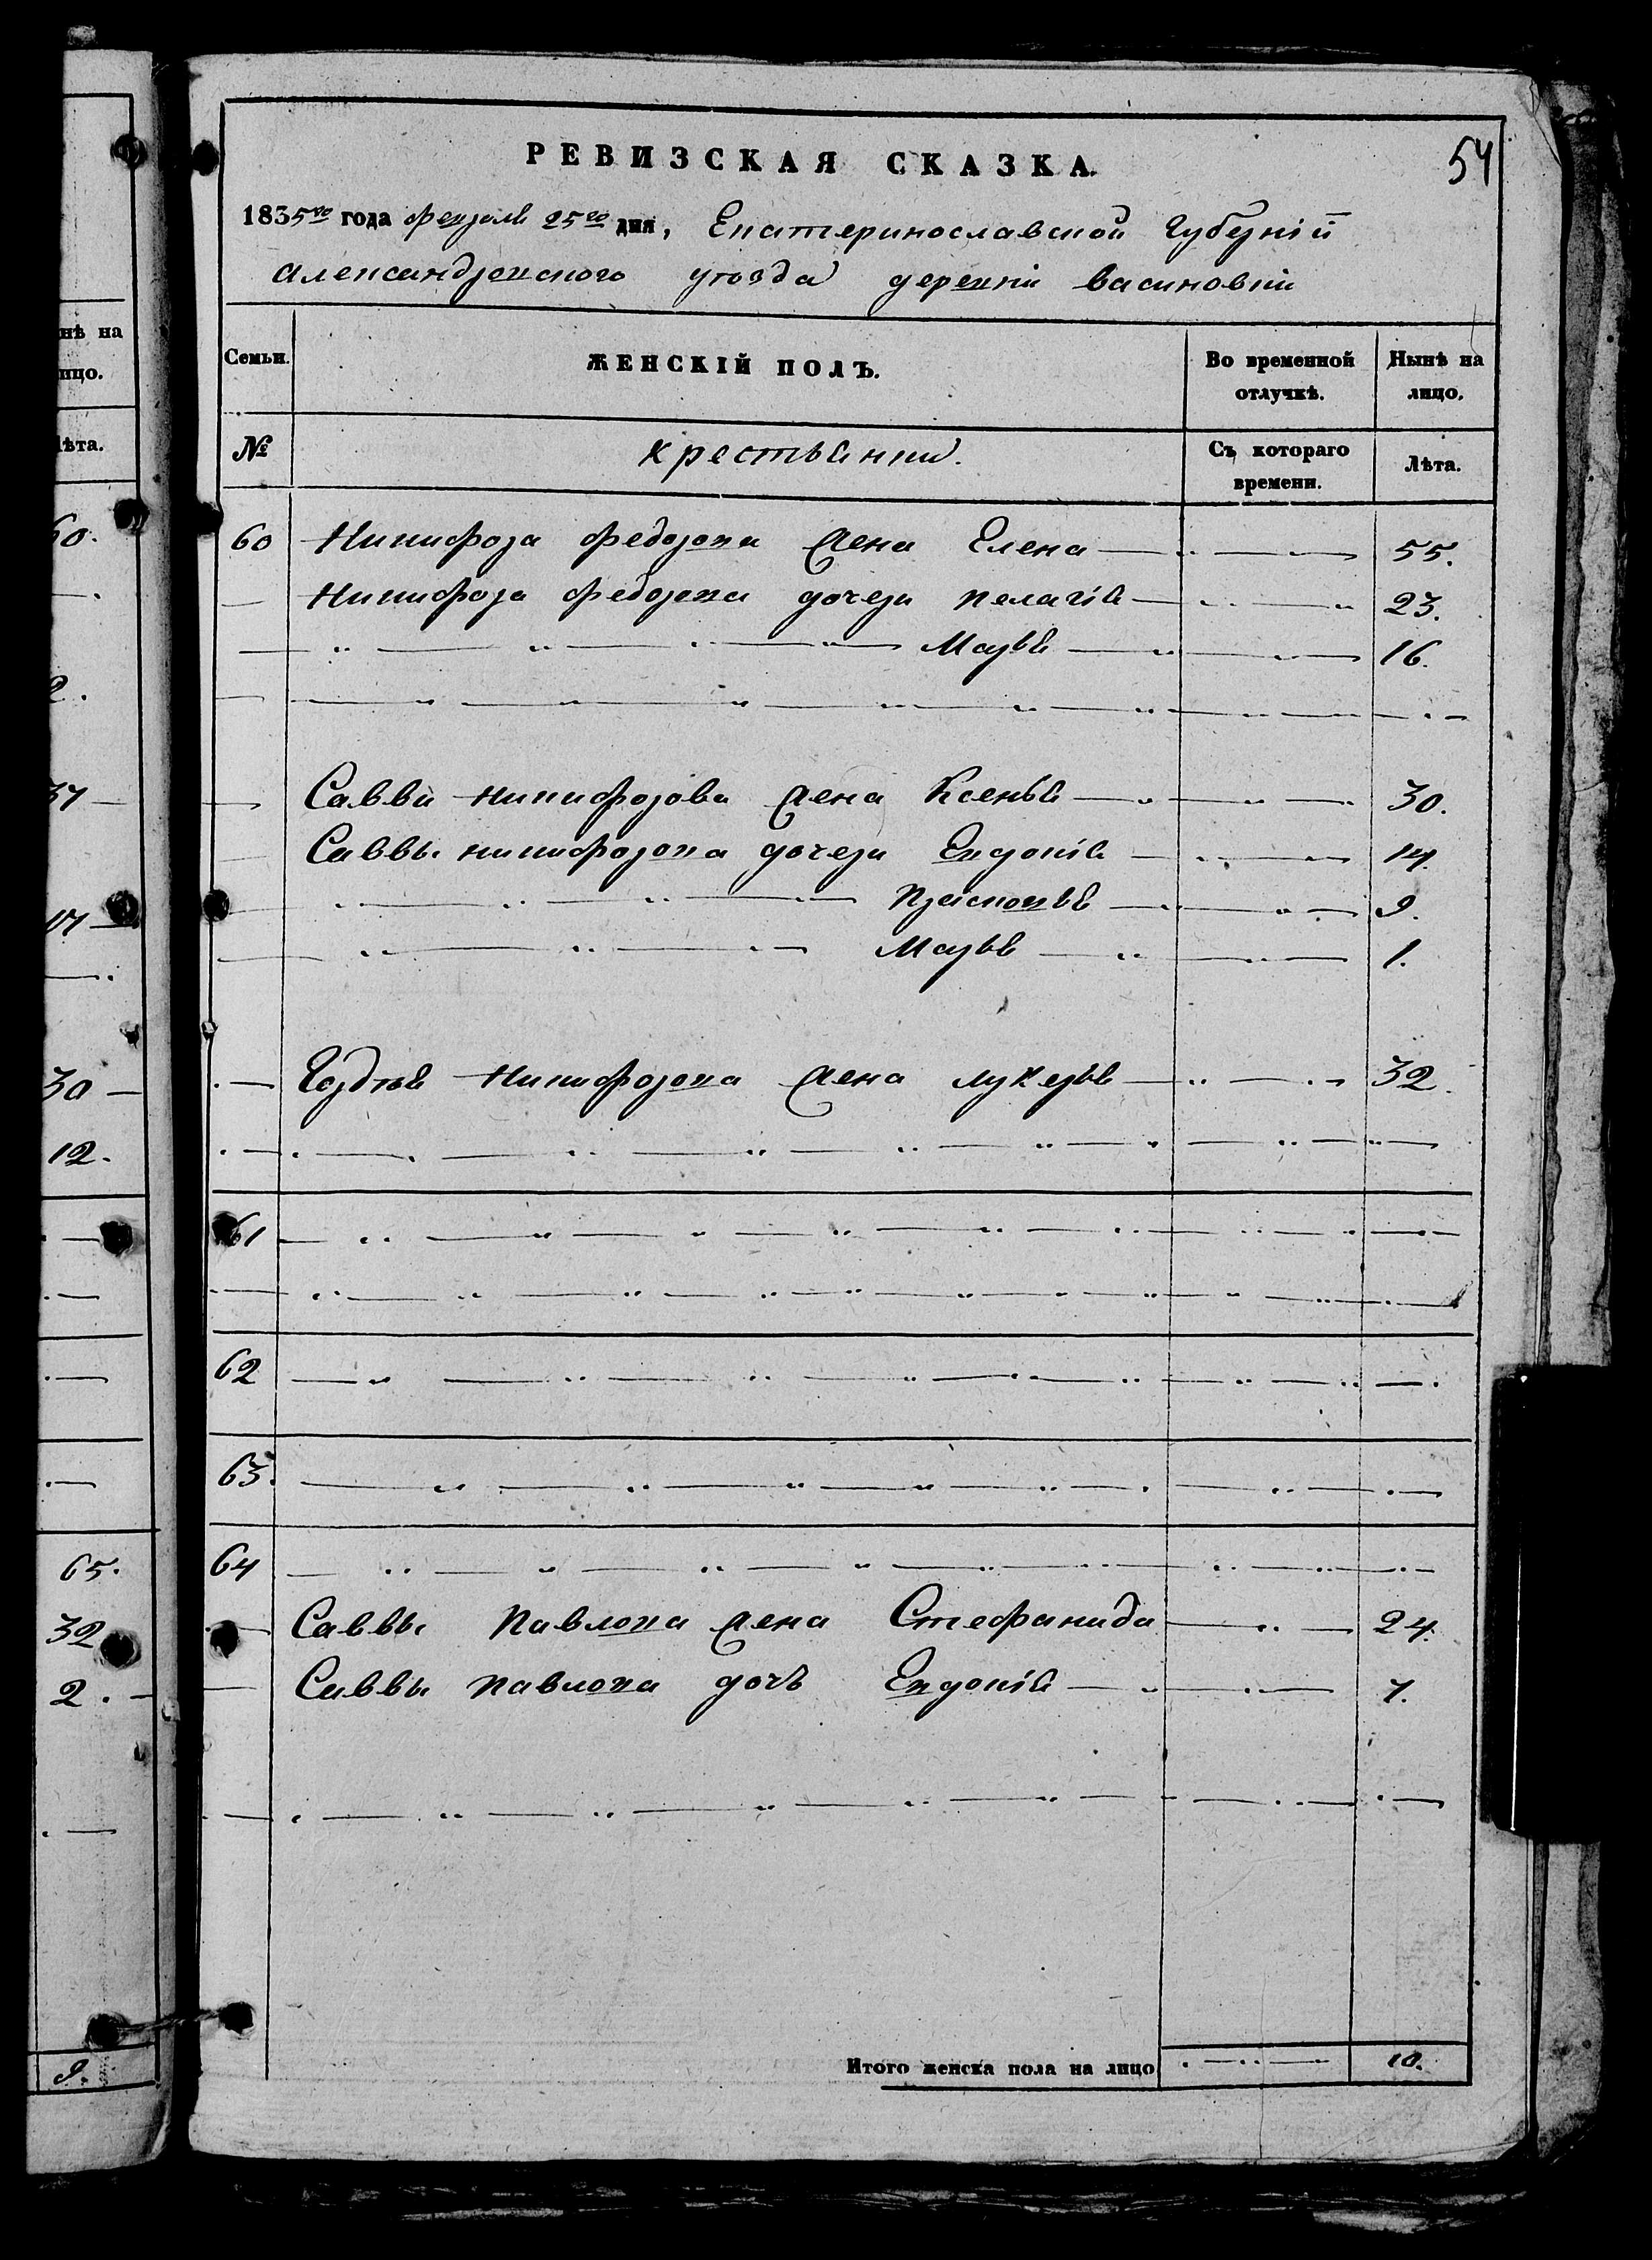 нѣ на
ицо.
ѣта.
60.
2.
37
17
30
12.
65.
32
2.
9.
54
РЕВИЗСКАЯ СКАЗКА.
1835го года февраля 25го дня, Екатеринославской Губерній
Александровского уѣзда деревни васиновки
Семьи. ЖЕНСКІЙ ПОЛЪ. Во временной отлучкѣ. Нынѣ на лицо.
№ крестьянки. Съ котораго времени. Лѣта.
60 Никифора федорова жена Елена 55.
Никифора федорова дочери пелагія 23.
Марья 16.
Саввы никифорова жена Ксенья 30.
Саввы никифорова дочери Евдокія 14.
Прасковья 9.
Марья 1.
Гордѣя Никифорова жена лукерья 32.
61
62
63.
64
Саввы павлова жена Стефанида 24.
Саввы павлова дочь Евдокія 7.
Итого женска пола на лицо 10.